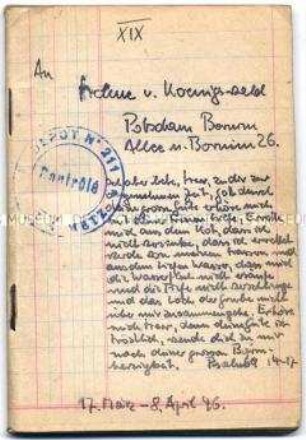 XIX
An
Helene v. Koenigswald
Potsdam Bornim
Allee n. Bornim 26.
DEPOT N° 211
Contrôle
METZ
Ich aber bete, Herr, zu dir zur
angenehmen Zeit, Gott durch
deine grosse Güte erhöre mich
mit deiner treuen Hilfe. Errette
mich aus dem Kot, dass ich
nicht versinke, dass ich errettet
werde von meinen Hassern und
aus dem tiefen Wasser, dass mich
die Wasserflut nicht ersäufe
und die Tiefe nicht verschlinge
und das Loch der Grube nicht
über mir zusammengehe. Erhöre
mich Herr, denn deine Güte ist
tröstlich, wende dich zu mir
nach deiner grossen Barm-
herzigkeit. Psalm 69 14-17
17. März – 8. April 46.